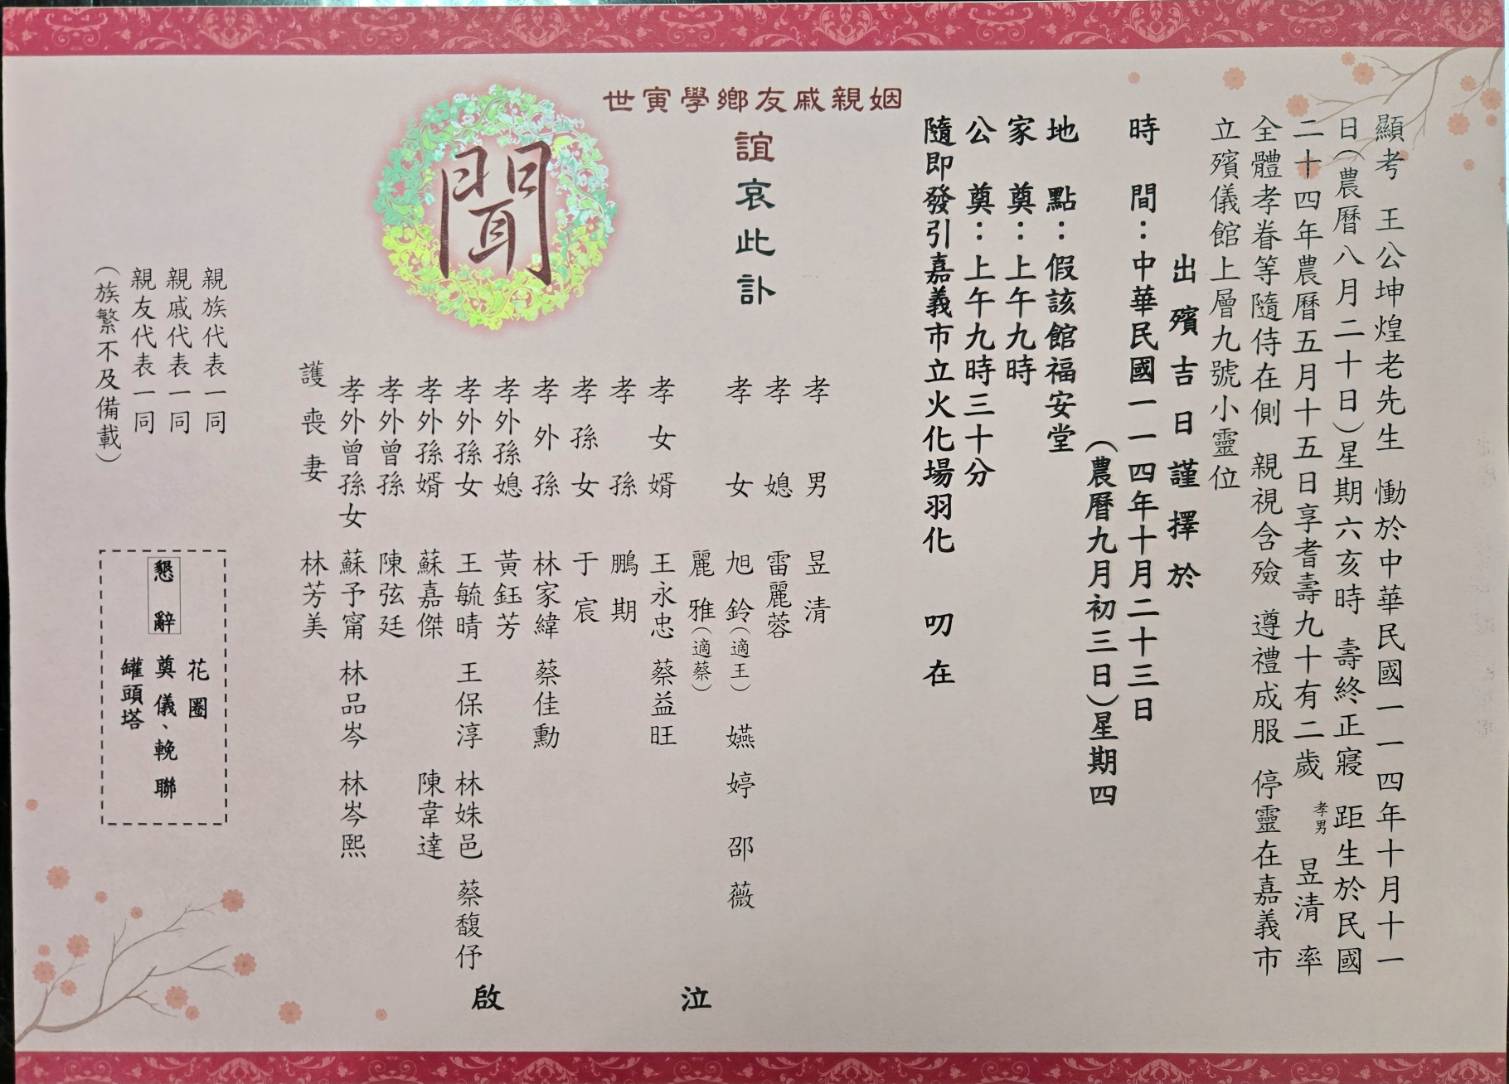 顯考 王公坤煌老先生 慟於中華民國一一四年十月十一
日(農曆八月二十日)星期六亥時 壽終正寢 距生於民國
二十四年農曆五月十五日享耆壽九十有二歲 孝男 昱清 率
全體孝眷等隨侍在側 親視含殮 遵禮成服 停靈在嘉義市
立殯儀館上層九號小靈位
出殯吉日謹擇於
時 間：中華民國一一四年十月二十三日
(農曆九月初三日)星期四
地 點：假該館福安堂
家 奠：上午九時
公 奠：上午九時三十分
隨即發引嘉義市立火化場羽化 叨在
世寅學鄉友戚親姻
誼哀此訃
聞
孝男 昱清
孝媳 雷麗蓉
孝女 旭鈴(適王) 嬿婷 邵薇
麗雅(適蔡)
孝女婿 王永忠 蔡益旺
孝孫 鵬期
孝孫女 于宸
孝外孫 林家緯 蔡佳勳
孝外孫媳 黃鈺芳
孝外孫女 王毓晴 王保淳 林姝邑 蔡馥伃
孝外孫婿 蘇嘉傑 陳韋達
孝外曾孫 陳弦廷
孝外曾孫女 蘇予甯 林品岑 林岑熙
護喪妻 林芳美
泣
啟
親族代表一同
親戚代表一同
親友代表一同
(族繁不及備載)
懇辭
花圈
奠儀、輓聯
罐頭塔